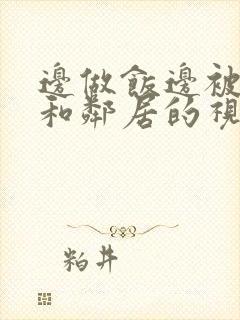 邊做飯邊被
和鄰居的視
粕井